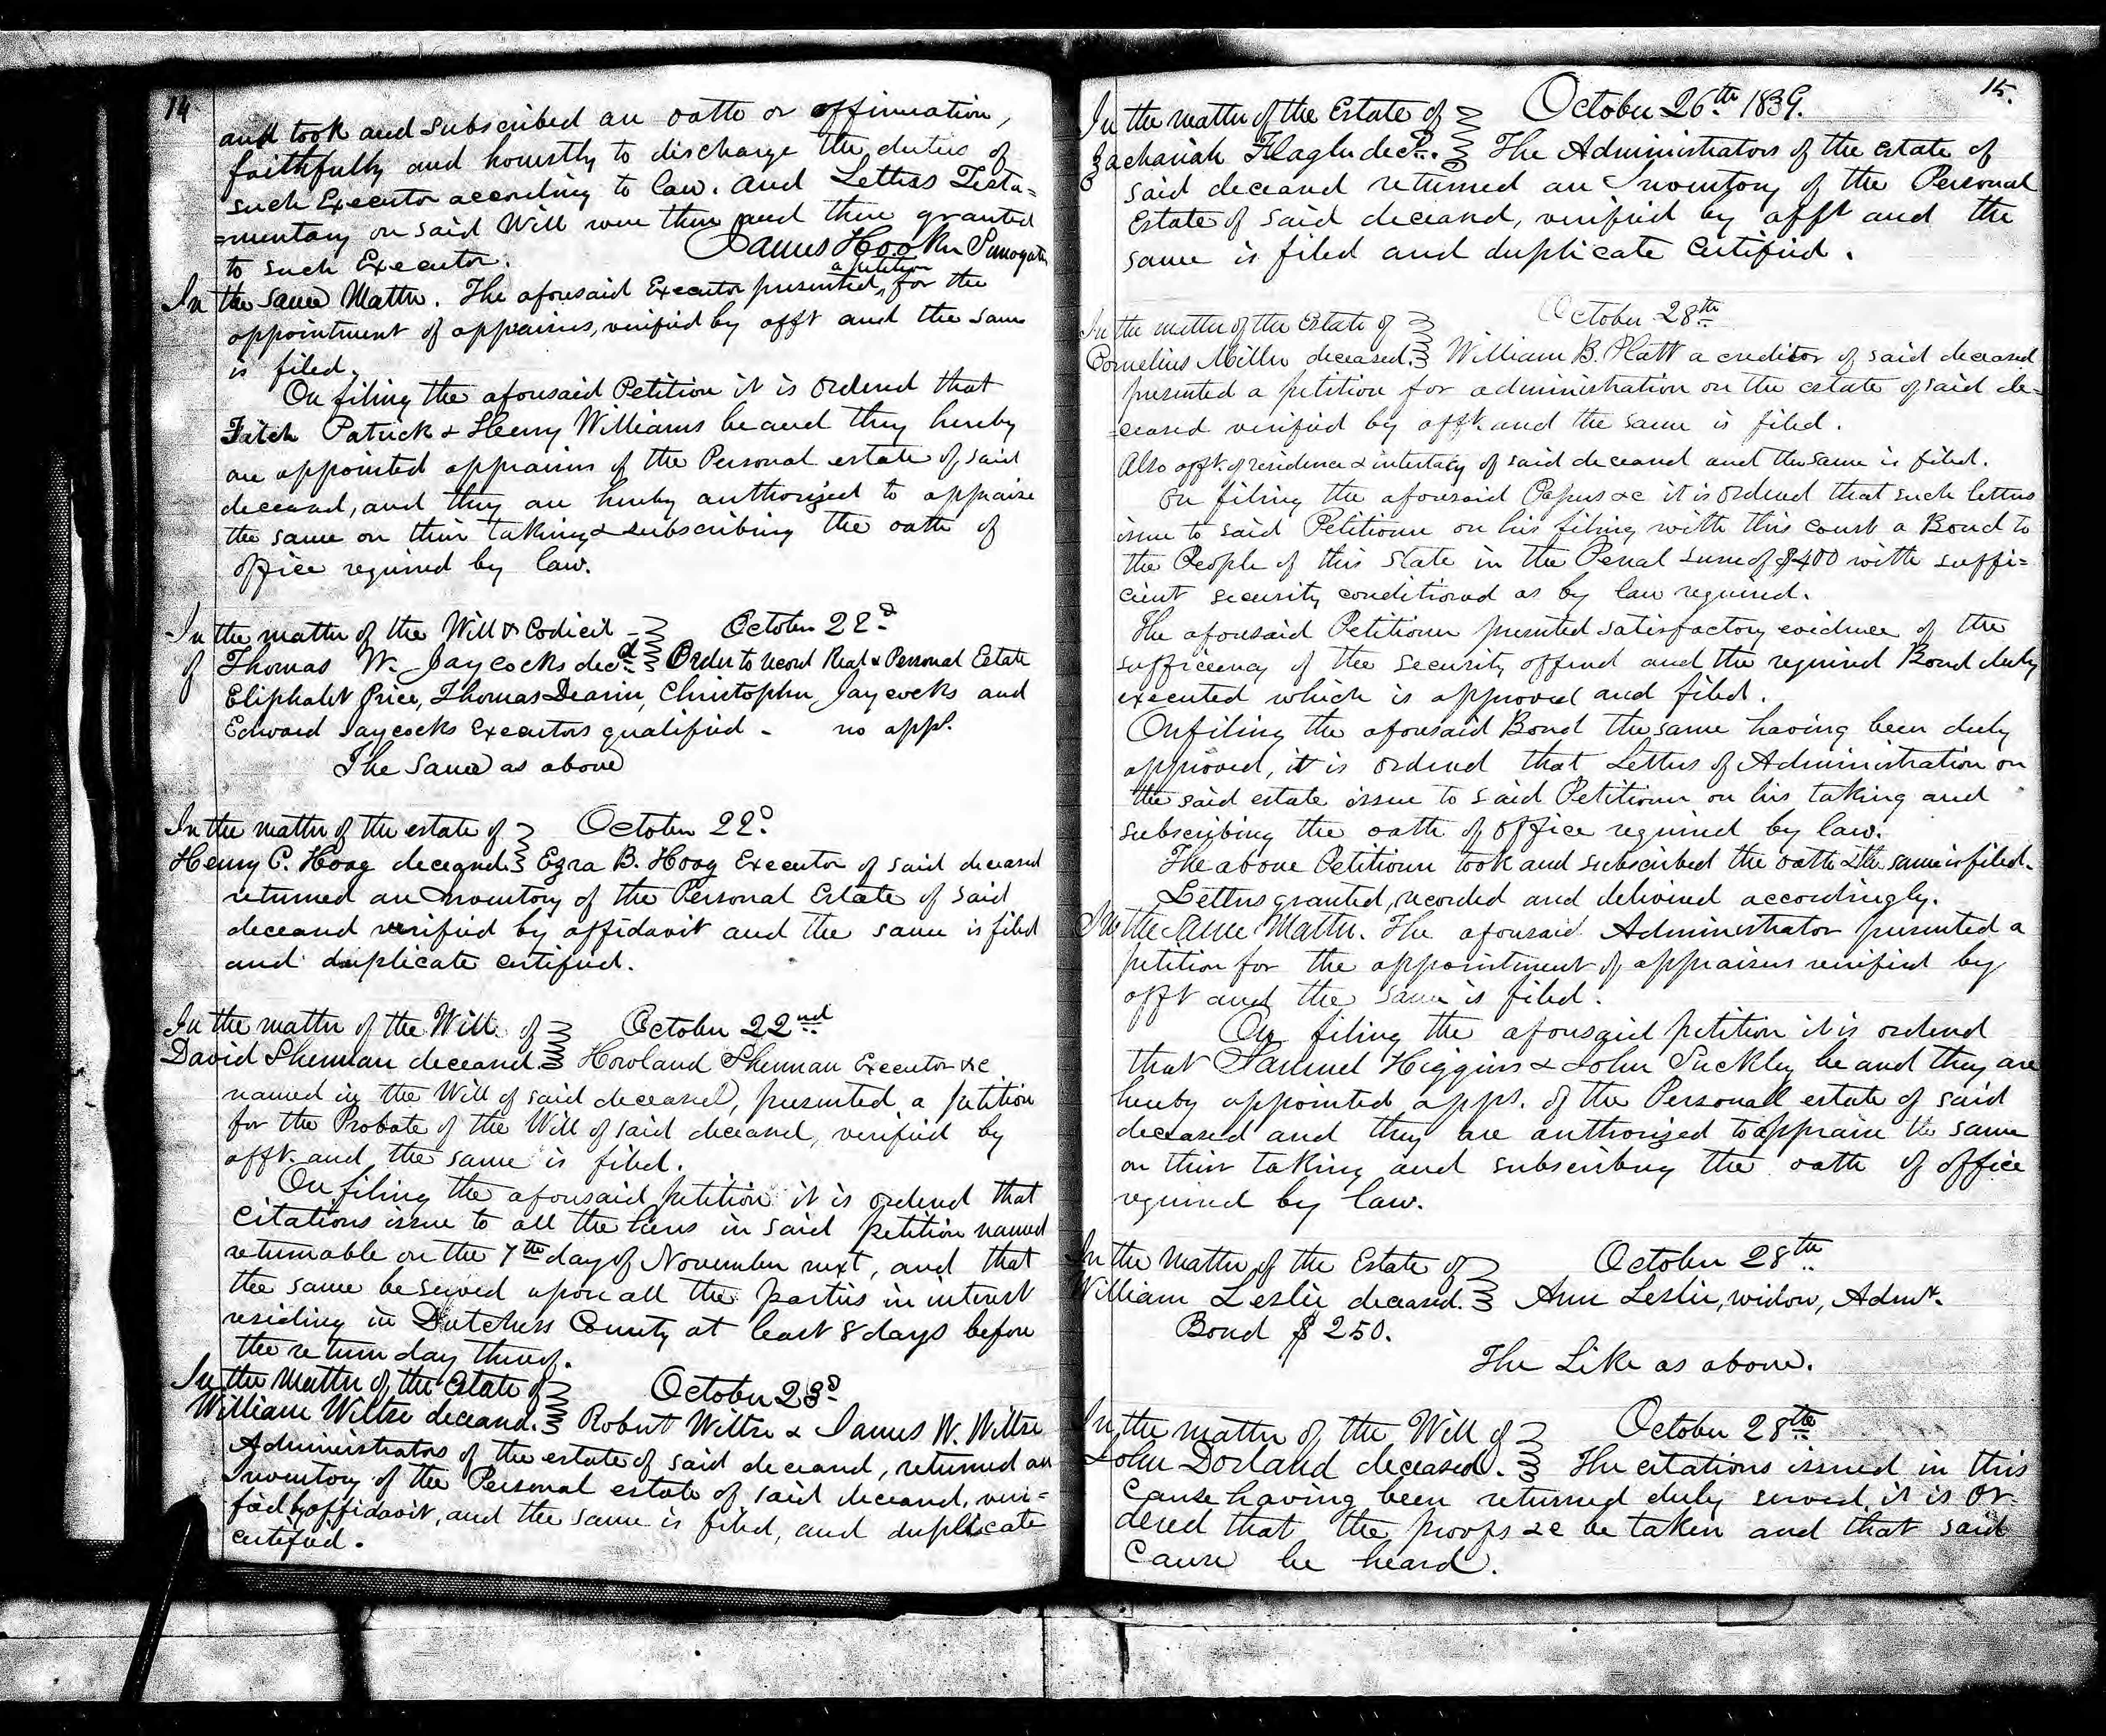 14
and took and subscribed an oath or affirmation,
faithfully and honestly to discharge the duties of
such Executor according to law. And Letters Testa=
=mentary on said Will were then and there granted
to such Executor. James Hooker Surrogate
a petition
In the same Matter. The aforesaid Executor presented, for the
appointment of appraisers, verified by afft and the same
is filed.
On filing the aforesaid Petition it is Ordered that
Fitch Patrick & Henry Williams be and they hereby
are appointed appraisers of the Personal estate of said
deceased, and they are hereby authorized to appraise
the same on their taking & subscribing the oath of
office required by law.
In the matter of the Will & Codicil October 22d
of Thomas W. Jaycocks decd. Order to record Real & Personal Estate
Eliphalet Price, Thomas Dearin, Christopher Jaycocks and
Edward Jaycocks Executors qualified - no appl.
The Same as above
In the matter of the estate of October 22d
Henry C. Hoag deceased. Ezra B. Hoag Executor of said deceased
returned an Inventory of the Personal Estate of said
deceased verified by affidavit and the same is filed
and duplicate certified.
In the matter of the Will of October 22nd
David Sherman deceased. Howland Sherman Executor &c
named in the Will of said deceased, presented a petition
for the Probate of the Will of said deceased, verified by
afft. and the same is filed.
On filing the aforesaid petition it is ordered that
Citations issue to all the heirs in said petition named
returnable on the 7th day of November next, and that
the same be served upon all the parties in interest
residing in Dutchess County at least 8 days before
the return day thereof.
In the Matter of the Estate of October 23d
William Wiltse deceased. Robert Wiltse & James W. Wiltse
Administrators of the estate of said deceased, returned an
Inventory of the Personal estate of said deceased, veri=
fied by affidavit, and the same is filed, and duplicate
certified.
15.
In the matter of the Estate of October 26th 1839.
Zachariah Flagler decd. The Administrators of the estate of
said deceased returned an Inventory of the Personal
Estate of said deceased, verified by afft and the
same is filed and duplicate certified.
In the matter of the Estate of October 28th
Cornelius Miller deceased. William B. Platt a creditor of said deceased
presented a petition for administration on the estate of said de=
=ceased verified by afft. and the same is filed.
Also afft. of residence & intestacy of said deceased and the same is filed.
On filing the aforesaid Papers &c it is Ordered that such letters
issue to said Petitioner on his filing with this court a Bond to
the People of this State in the Penal sum of $400 with suffi=
cient security conditioned as by law required.
The aforesaid Petitioner presented satisfactory evidence of the
sufficiency of the security offered and the required Bond duly
executed which is approved and filed.
On filing the aforesaid Bond the same having been duly
approved, it is ordered that Letters of Administration on
the said estate issue to said Petitioner on his taking and
subscribing the oath of office required by law.
The above Petitioner took and subscribed the oath & the same is filed.
Letters granted, recorded and delivered accordingly.
In the same Matter. The aforesaid Administrator presented a
petition for the appointment of appraisers verified by
afft and the same is filed.
On filing the aforesaid petition it is ordered
that Samuel Higgins & John Suckley be and they are
hereby appointed apprs. of the Personall estate of said
deceased and they are authorized to appraise the same
on their taking and subscribing the oath of office
required by law.
In the Matter of the Estate of October 28th
William Leslie deceased. Ann Leslie, widow, Admx.
Bond $250.
The Like as above.
In the matter of the Will of October 28th
John Dorland deceased. The citations issued in this
Cause having been returned duly served, it is Or=
dered that the proofs &c be taken and that said
Cause be heard.